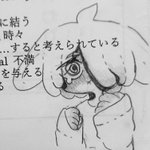 に結う
時々
…すると考えられている
al 不満
を与える
る